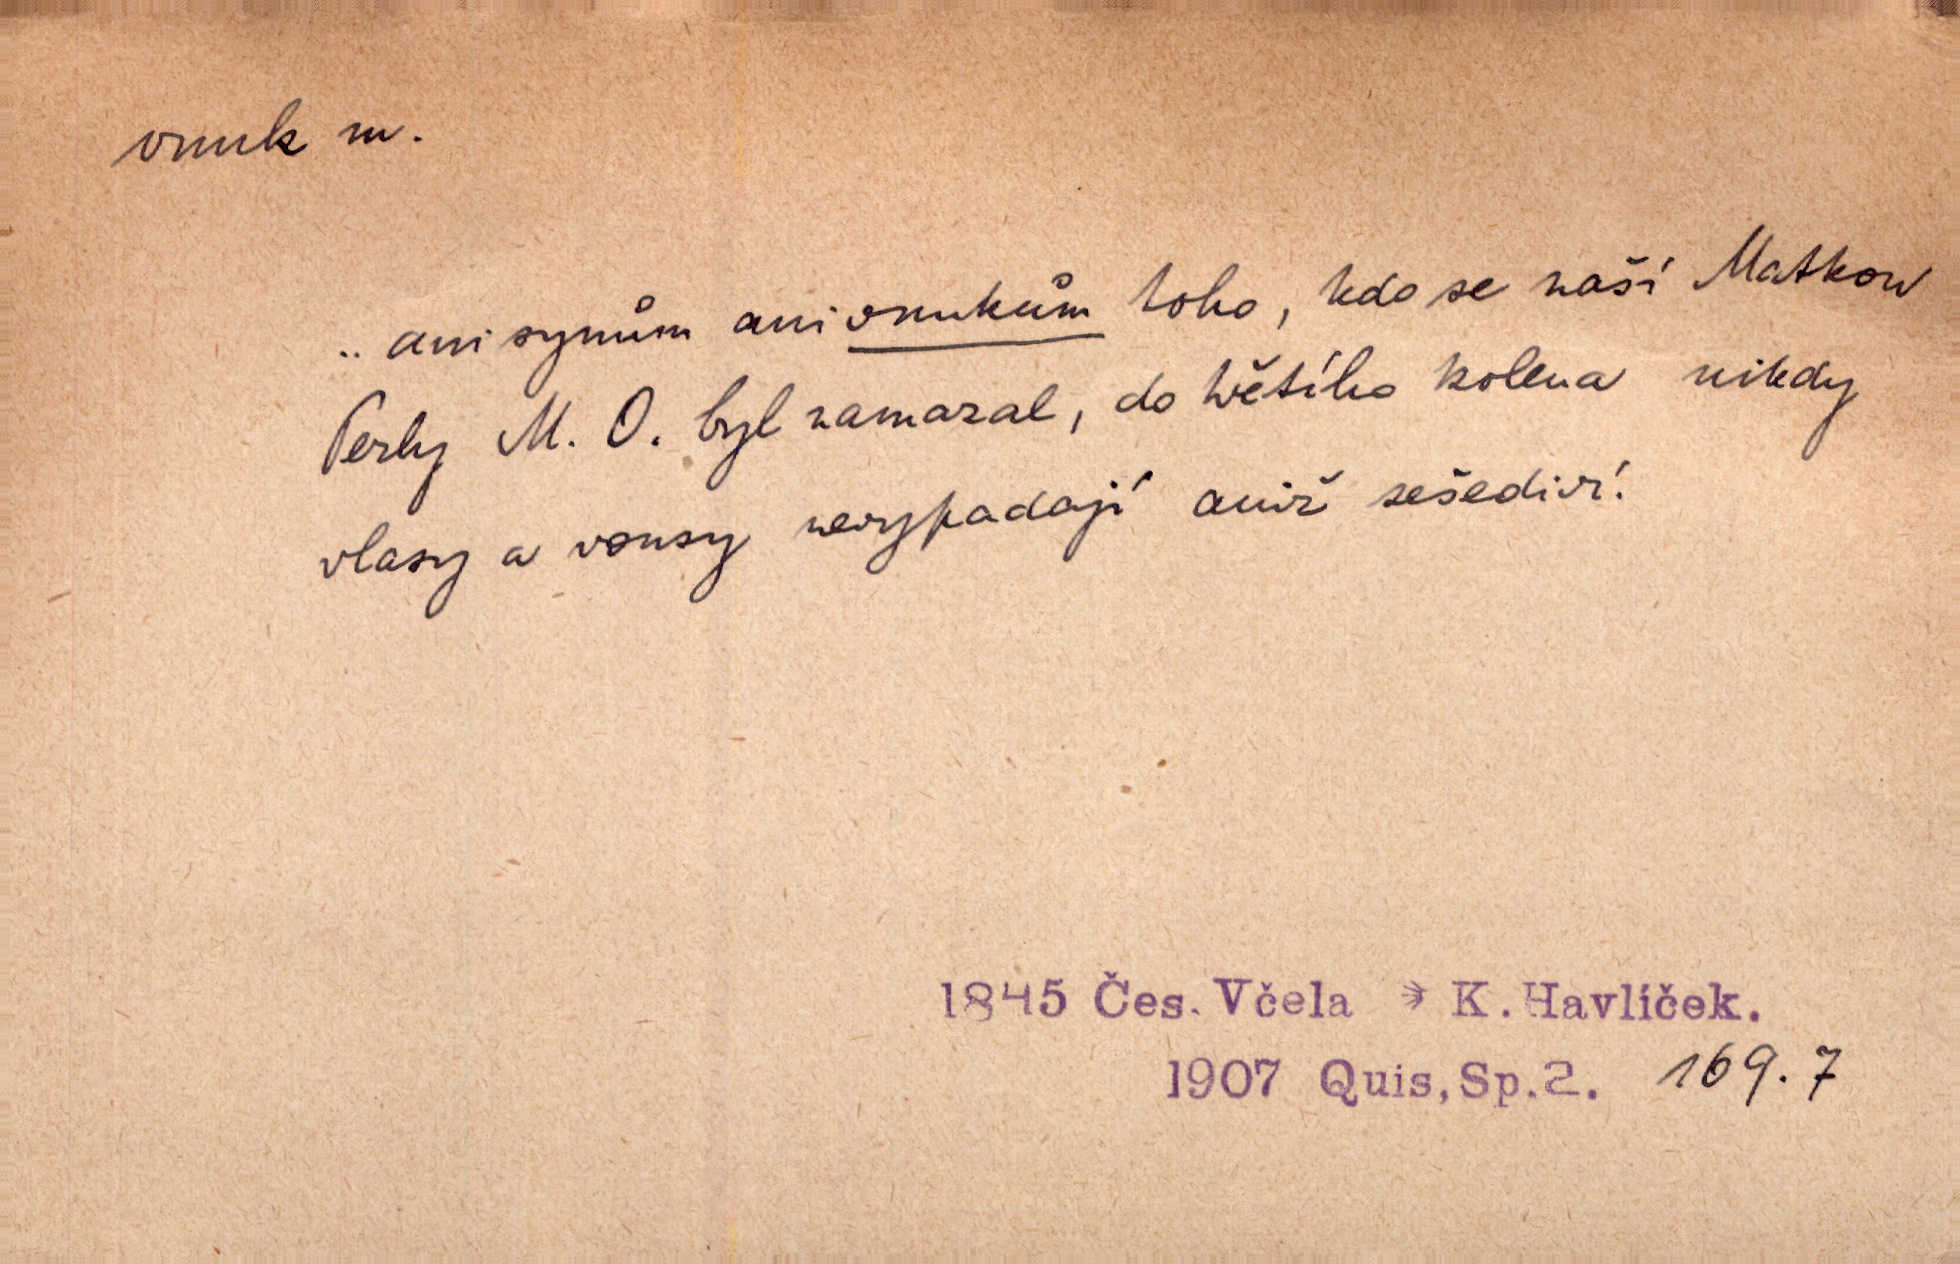 vnuk m.
.. ani synům ani vnukům toho, kdo se naší Matkou
Perly M. O. byl namazal, do třetího kolena nikdy
vlasy a vousy nevypadají aniž sešediví.
1845 Čes. Včela * K. Havlíček.
1907 Quis, Sp. 2. 169. 7